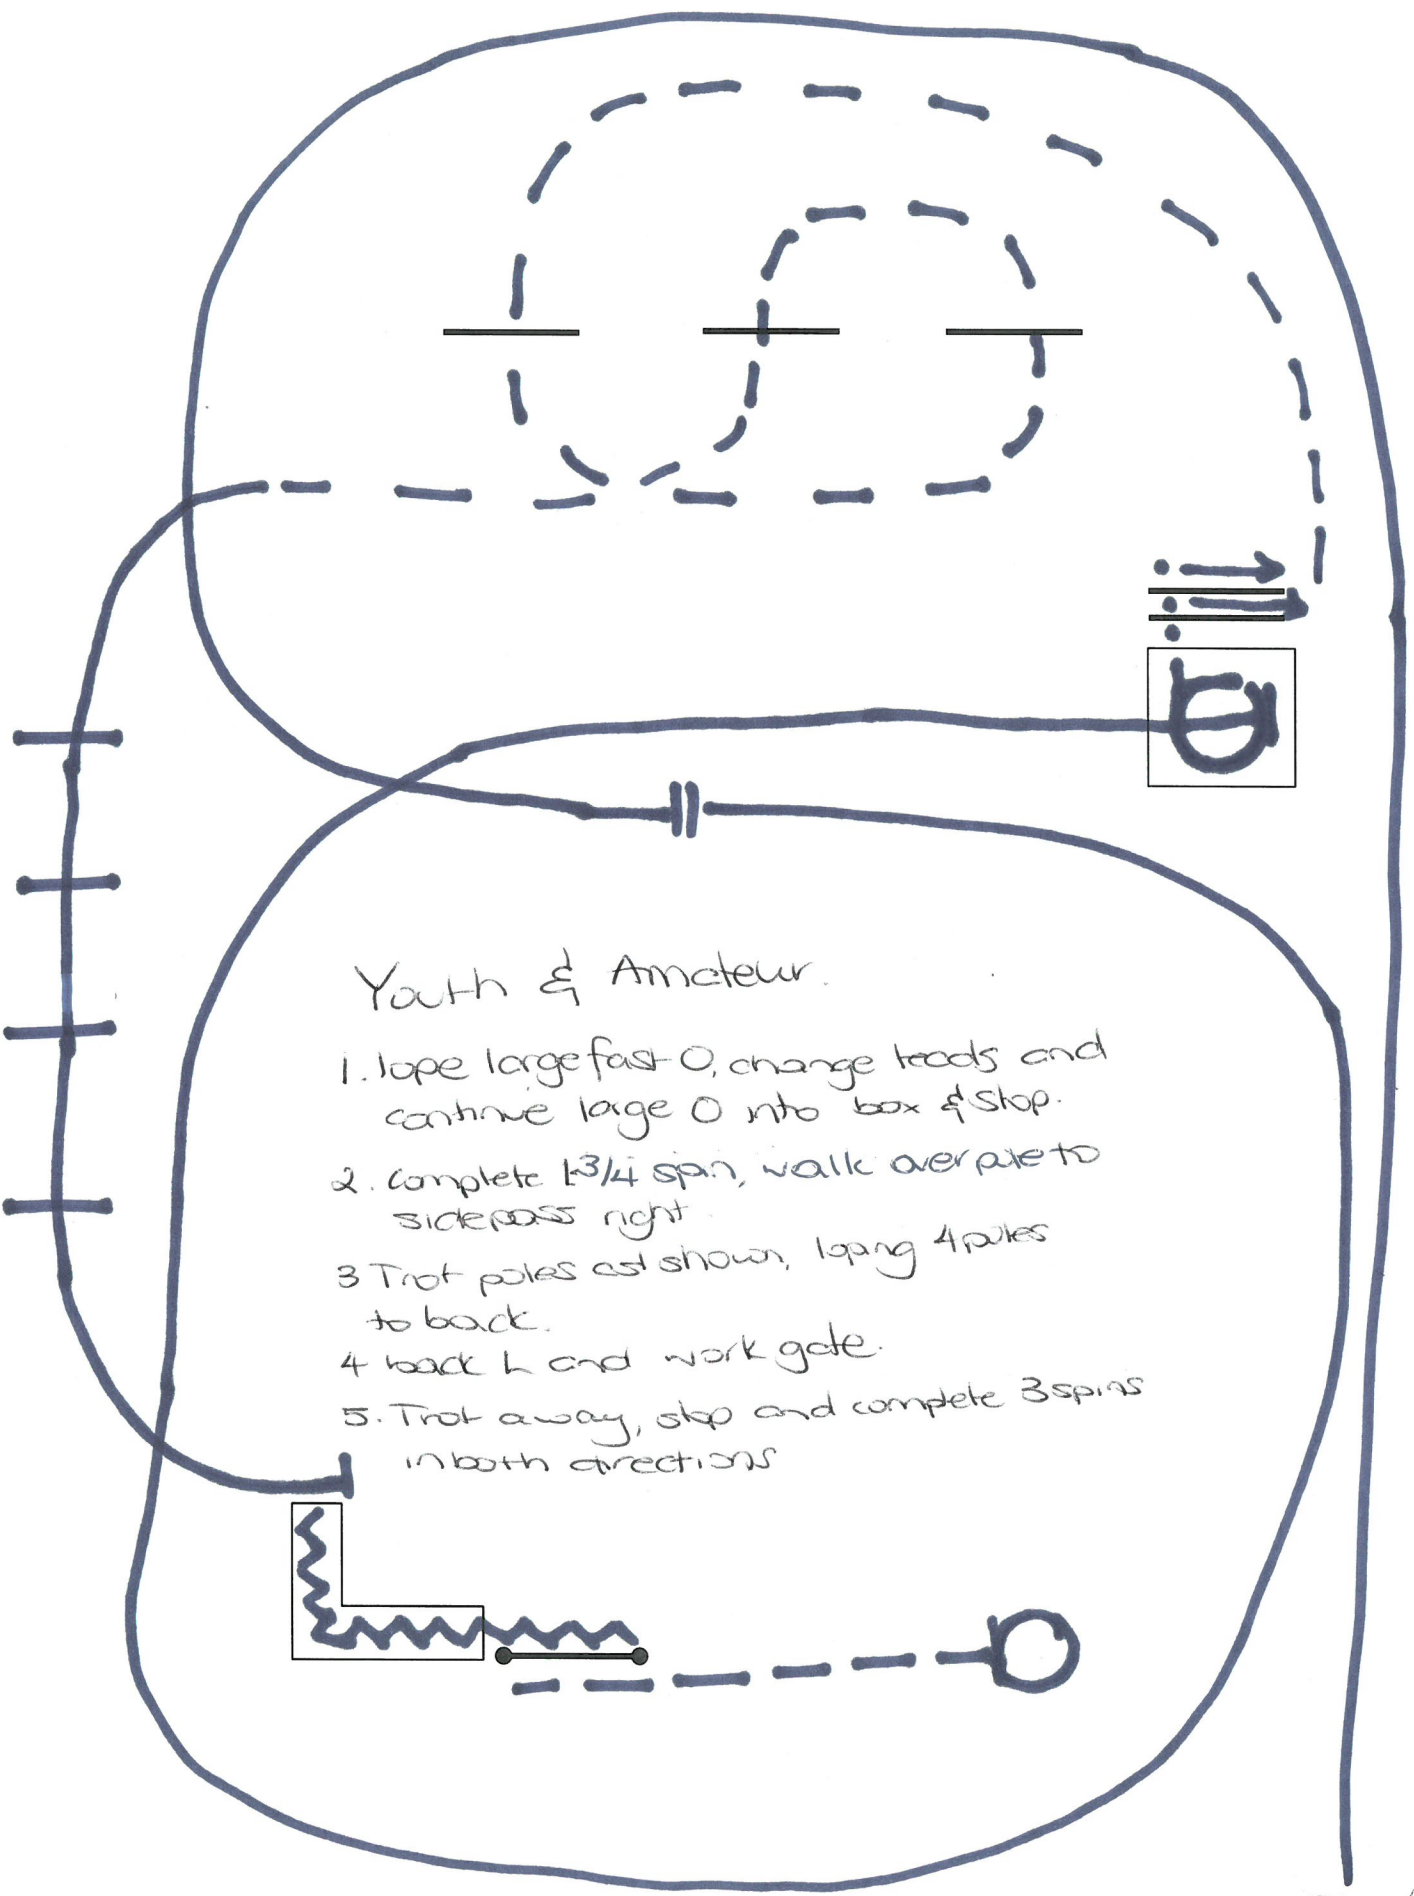 Youth & Amateur.
1. lope large fast O, change leads and
continue large O into box & stop.
2. Complete 1 3/4 spin, walk over pole to
sidepass right.
3 Trot poles as shown, loping 4 poles
to back.
4 back L and work gate.
5. Trot away, stop and complete 3 spins
in both directions